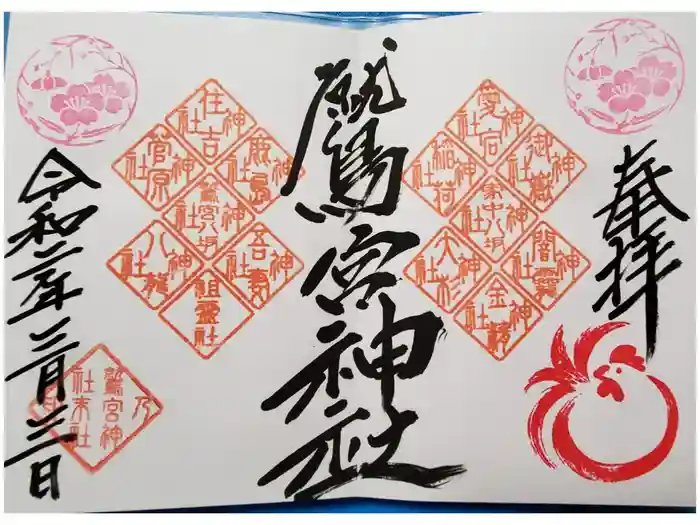 奉拝
愛宕神社
御嶽神社
稲荷神社
家中八坂神社
闇龗神社
大杉神社
金精神社
鷲宮神社
住吉神社
厳島神社
菅原神社
鷲宮八坂神社
吾妻神社
八龍神社
祖霊社
令和二年三月三日
乃
鷲宮神
社末社